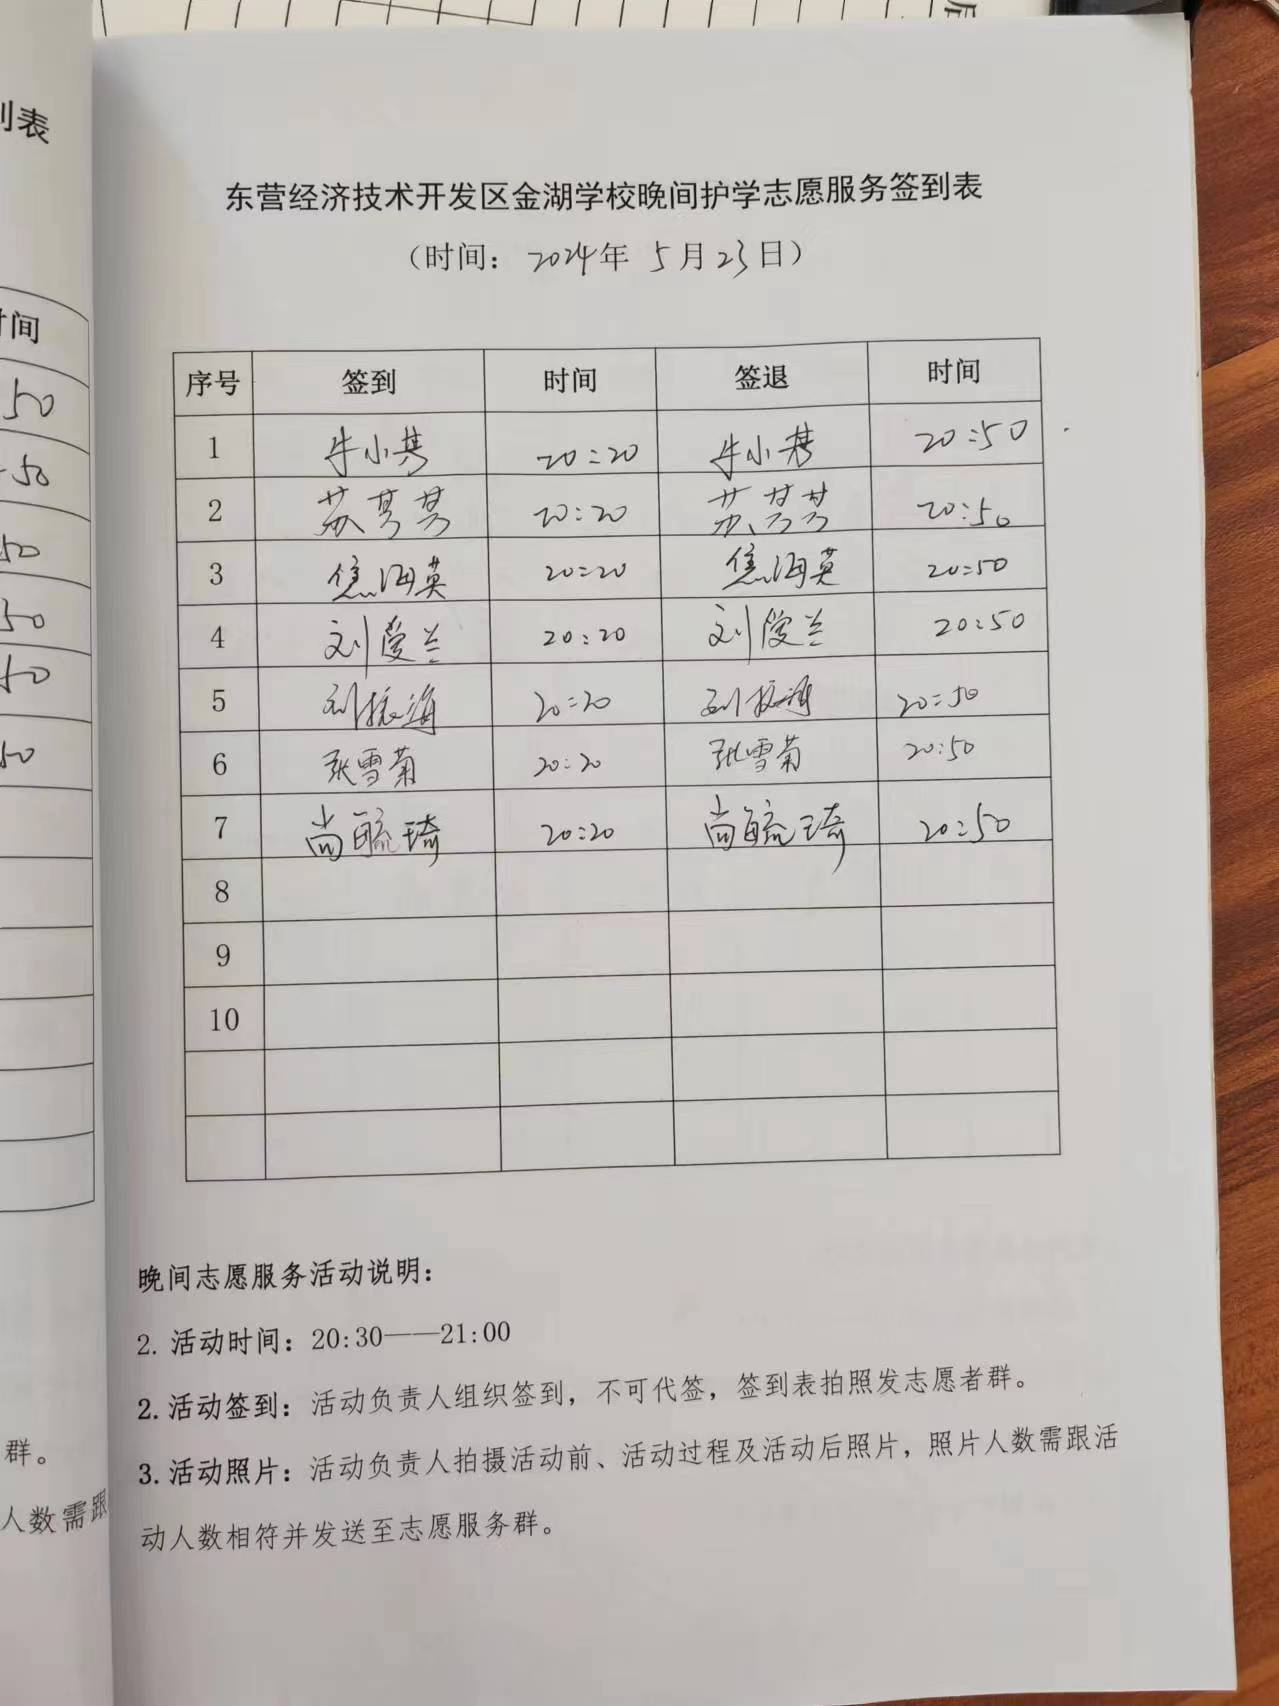 到表
时间
50
50
50
50
50
50
群。
人数需跟
后
东营经济技术开发区金湖学校晚间护学志愿服务签到表
（时间：2024年 5月23日）
序号 签到 时间 签退 时间
1 牛小 20:20 牛小 20:50
2 苏芎芎 20:20 苏芎芎 20:50
3 焦海英 20:20 焦海英 20:50
4 刘爱兰 20:20 刘爱兰 20:50
5 刘振海 20:20 刘振海 20:50
6 张雪菊 20:20 张雪菊 20:50
7 尚毓琦 20:20 尚毓琦 20:50
8
9
10
晚间志愿服务活动说明：
2. 活动时间：20:30——21:00
2.活动签到：活动负责人组织签到，不可代签，签到表拍照发志愿者群。
3.活动照片：活动负责人拍摄活动前、活动过程及活动后照片，照片人数需跟活
动人数相符并发送至志愿服务群。